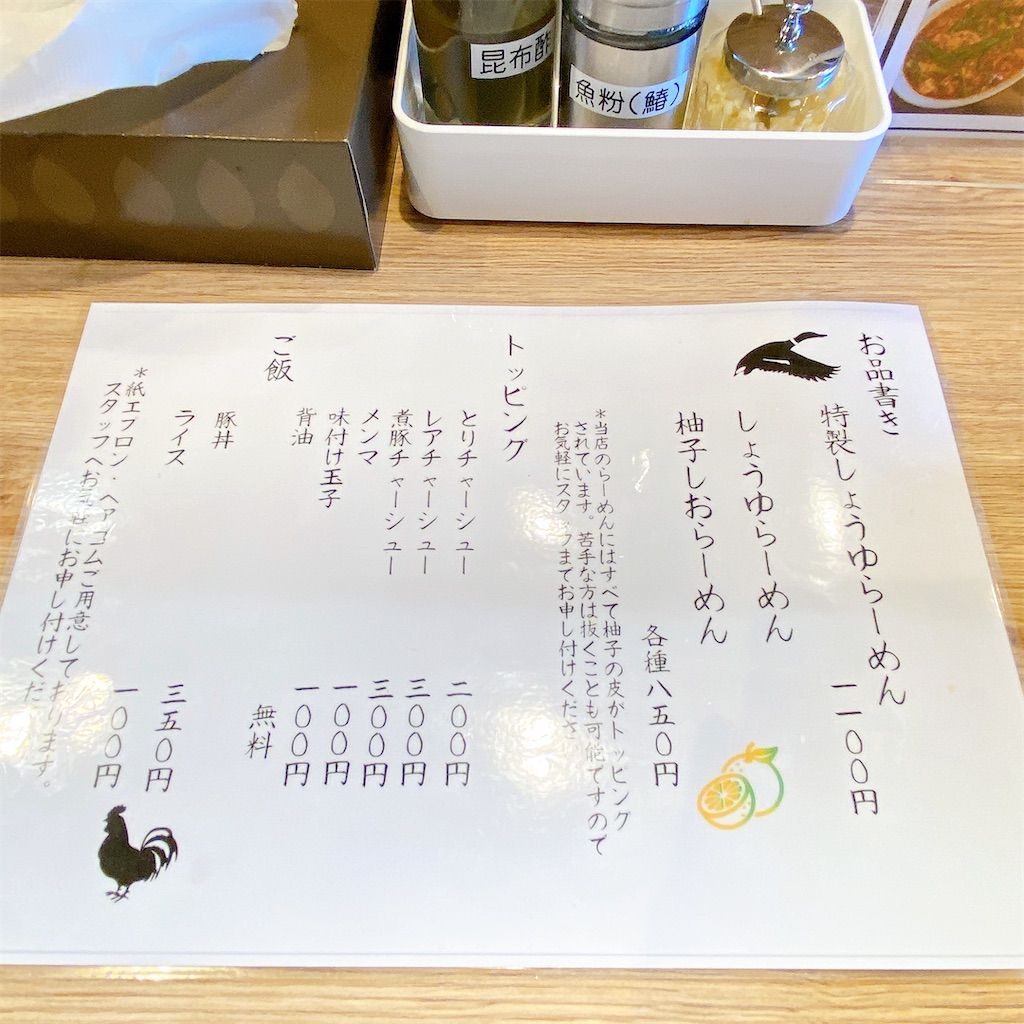 昆布酢
魚粉(鰆)
お品書き
特製しょうゆらーめん
一一〇〇円
しょうゆらーめん
柚子しおらーめん
各種八五〇円
*当店のらーめんにはすべて柚子の皮がトッピング
されています。苦手な方は抜くことも可能ですので
お気軽にスタッフまでお申し付けください
トッピング
とりチャーシュー
二〇〇円
レアチャーシュー
三〇〇円
煮豚チャーシュー
三〇〇円
メンマ
一〇〇円
味付け玉子
一〇〇円
背油
無料
ご飯
豚丼
三五〇円
ライス
一〇〇円
*紙エプロン・ヘアゴムご用意しております。
スタッフへお気軽にお申し付けくだ